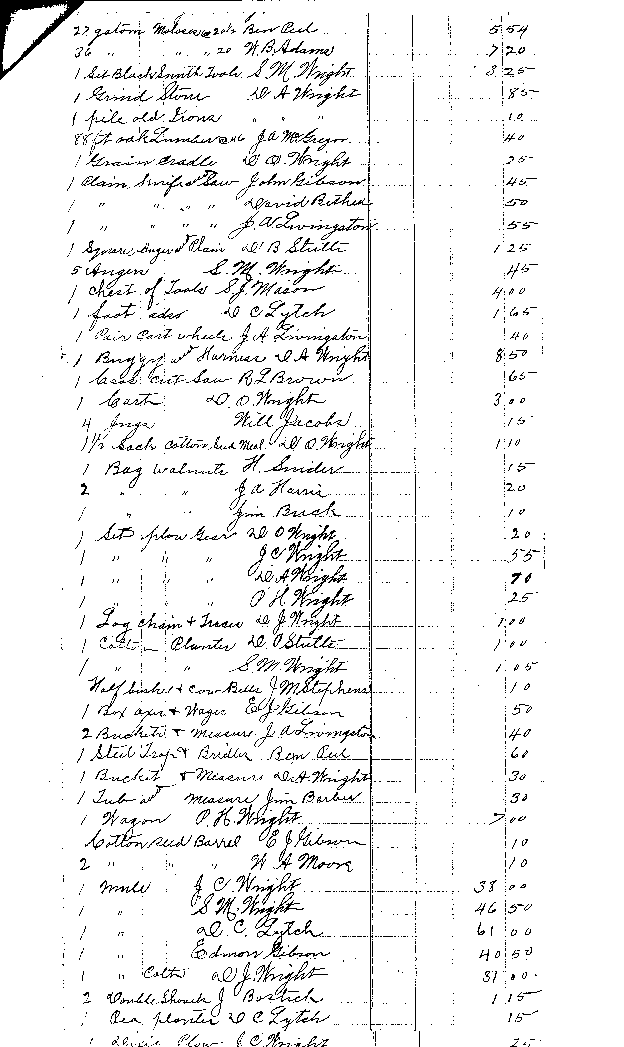 27 gatom Moloses @ 20½ Ben Peel 5 54
36 " " " 20 W. B. Adams 7 20
1 Set Black Smith Tools S. M. Wright 8 25
1 Grind Stone D A Wright 85
1 pile old Irons " " " 10
88 ft oak Lumber @ 46 J. A McGregor 40
1 Grain Cradle D. O. Wright 25
1 Saw John Gibson 45
1 " " " " David Bethea 50
1 " " " " J. A Livingston 55
1 Square, Auger & Plain D. B Stutts 1 25
5 Augers S. M. Wright 45
1 Chest of Tools S. J. Mason 4 00
1 foot adze D C Lytch 1 65
1 Pair Cart wheels J. A. Livingston 40
1 Buggy & Harness D A Wright 8 50
1 Cross cut Saw R L Brown 65
1 Cart D. O. Wright 3 00
4 Jugs Will Jacobs 15
1½ Sack Cotton Seed Meal D O. Wright 1 10
1 Bag walnuts H. Snider 15
2 " " J A Harris 20
1 " " Jim Buch 10
1 Set plow Gear D O Wright 20
1 " " " J C Wright 55
1 " " " D A Wright 70
1 " " " P. H. Wright 25
1 Log chain & Traces D J. Wright 1 00
1 Cotton Planter D. O Stutts 1 00
1 " " S. M. Wright 1 05
Half bushel & Cow Bells J. M Stephens 10
1 Box axes & Wages E J Gibson 50
2 Buckets & Measure J. A Livingston 40
1 Steel Trap & Bridles Ben Peel 60
1 Bucket & Measure D. A Wright 30
1 Tub & measure Jim Barber 30
1 Wagon P. H. Wright 7 00
Cotton seed Barrel E J Gibson 10
2 " " " W A Moore 10
1 Mule J C Wright 38 00
1 " S. M. Wright 46 50
1 " D. C. Lytch 61 00
1 " Edmon Gibson 40 50
1 " Colts D. J. Wright 31 00
2 Double Shovels J Bostick 1 15
1 Pea planter D C Lytch 15
1 Plow J. C Wright 25